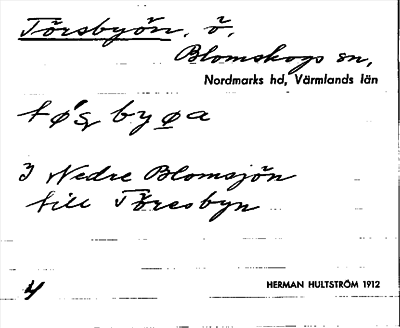 Törsbyön, ö,
Blomskogs sn,
Nordmarks hd, Värmlands län
3 Nedre Blomsjön
till Töresbyn
4
HERMAN HULTSTRÖM 1912